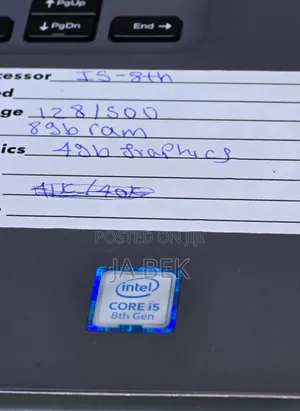 ↑PgUp
↓PgDn
End →
cessor I5-8th
ed
ge 128/500
8gb ram
ics 4gb graphics
POSTED ON jiji
JA BEK
intel
CORE i5
8th Gen